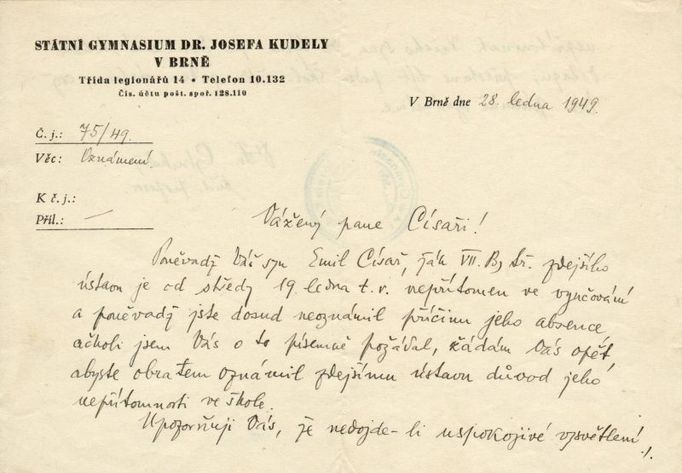 STÁTNÍ GYMNASIUM DR. JOSEFA KUDELY
V BRNĚ
Třída legionářů 14 • Telefon 10.132
Čís. účtu pošt. spoř. 128.110
V Brně dne 28. ledna 1949.
Č. j.: 75/49.
Věc: Oznámení.
K č. j.:
Příl.: —
Vážený pane Císaři!
Poněvadž Váš syn Emil Císař, žák VII. B, tř. zdejšího
ústavu je od středy 19 ledna t. r. nepřítomen ve vyučování
a poněvadž jste dosud neoznámil příčinu jeho absence,
ačkoli jsem Vás o to písemně požádal, žádám Vás opět,
abyste obratem oznámil zdejšímu ústavu důvod jeho
nepřítomnosti ve škole.
Upozorňuji Vás, že nedojde-li uspokojivé vysvětlení
./.